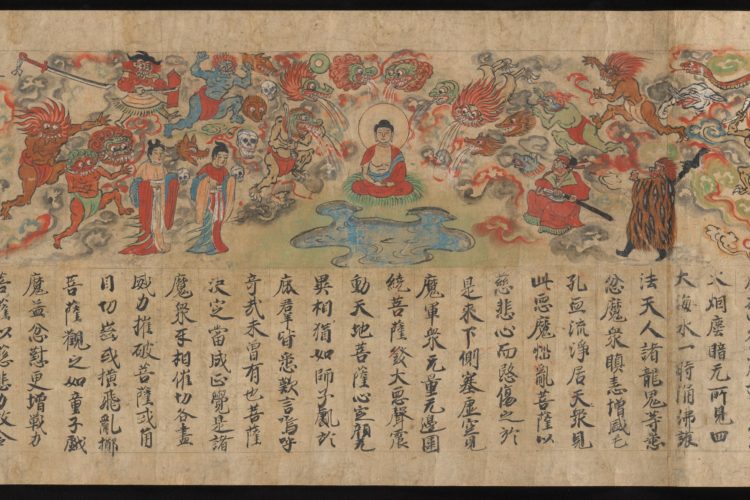 火烟塵暗无所見四
大海水一時涌沸護
法天人諸龍鬼等悉
忿魔衆瞋恚增盛毛
孔血流淨居天衆見
此惡魔惱亂菩薩以
慈悲心而愍傷之於
是來下側塞虛空見
魔軍衆无量无邊圍
繞菩薩發大惡聲震
動天地菩薩心定顏无
異相猶如師子處於
鹿羣皆悉歎言嗚呼
奇哉未曾有也菩薩
決定當成正覺是諸
魔衆互相催切各盡
威力摧破菩薩或角
目切齒或橫飛亂擲
菩薩觀之如童子戲
魔益忿懟更增戰力
菩薩以慈悲力故令